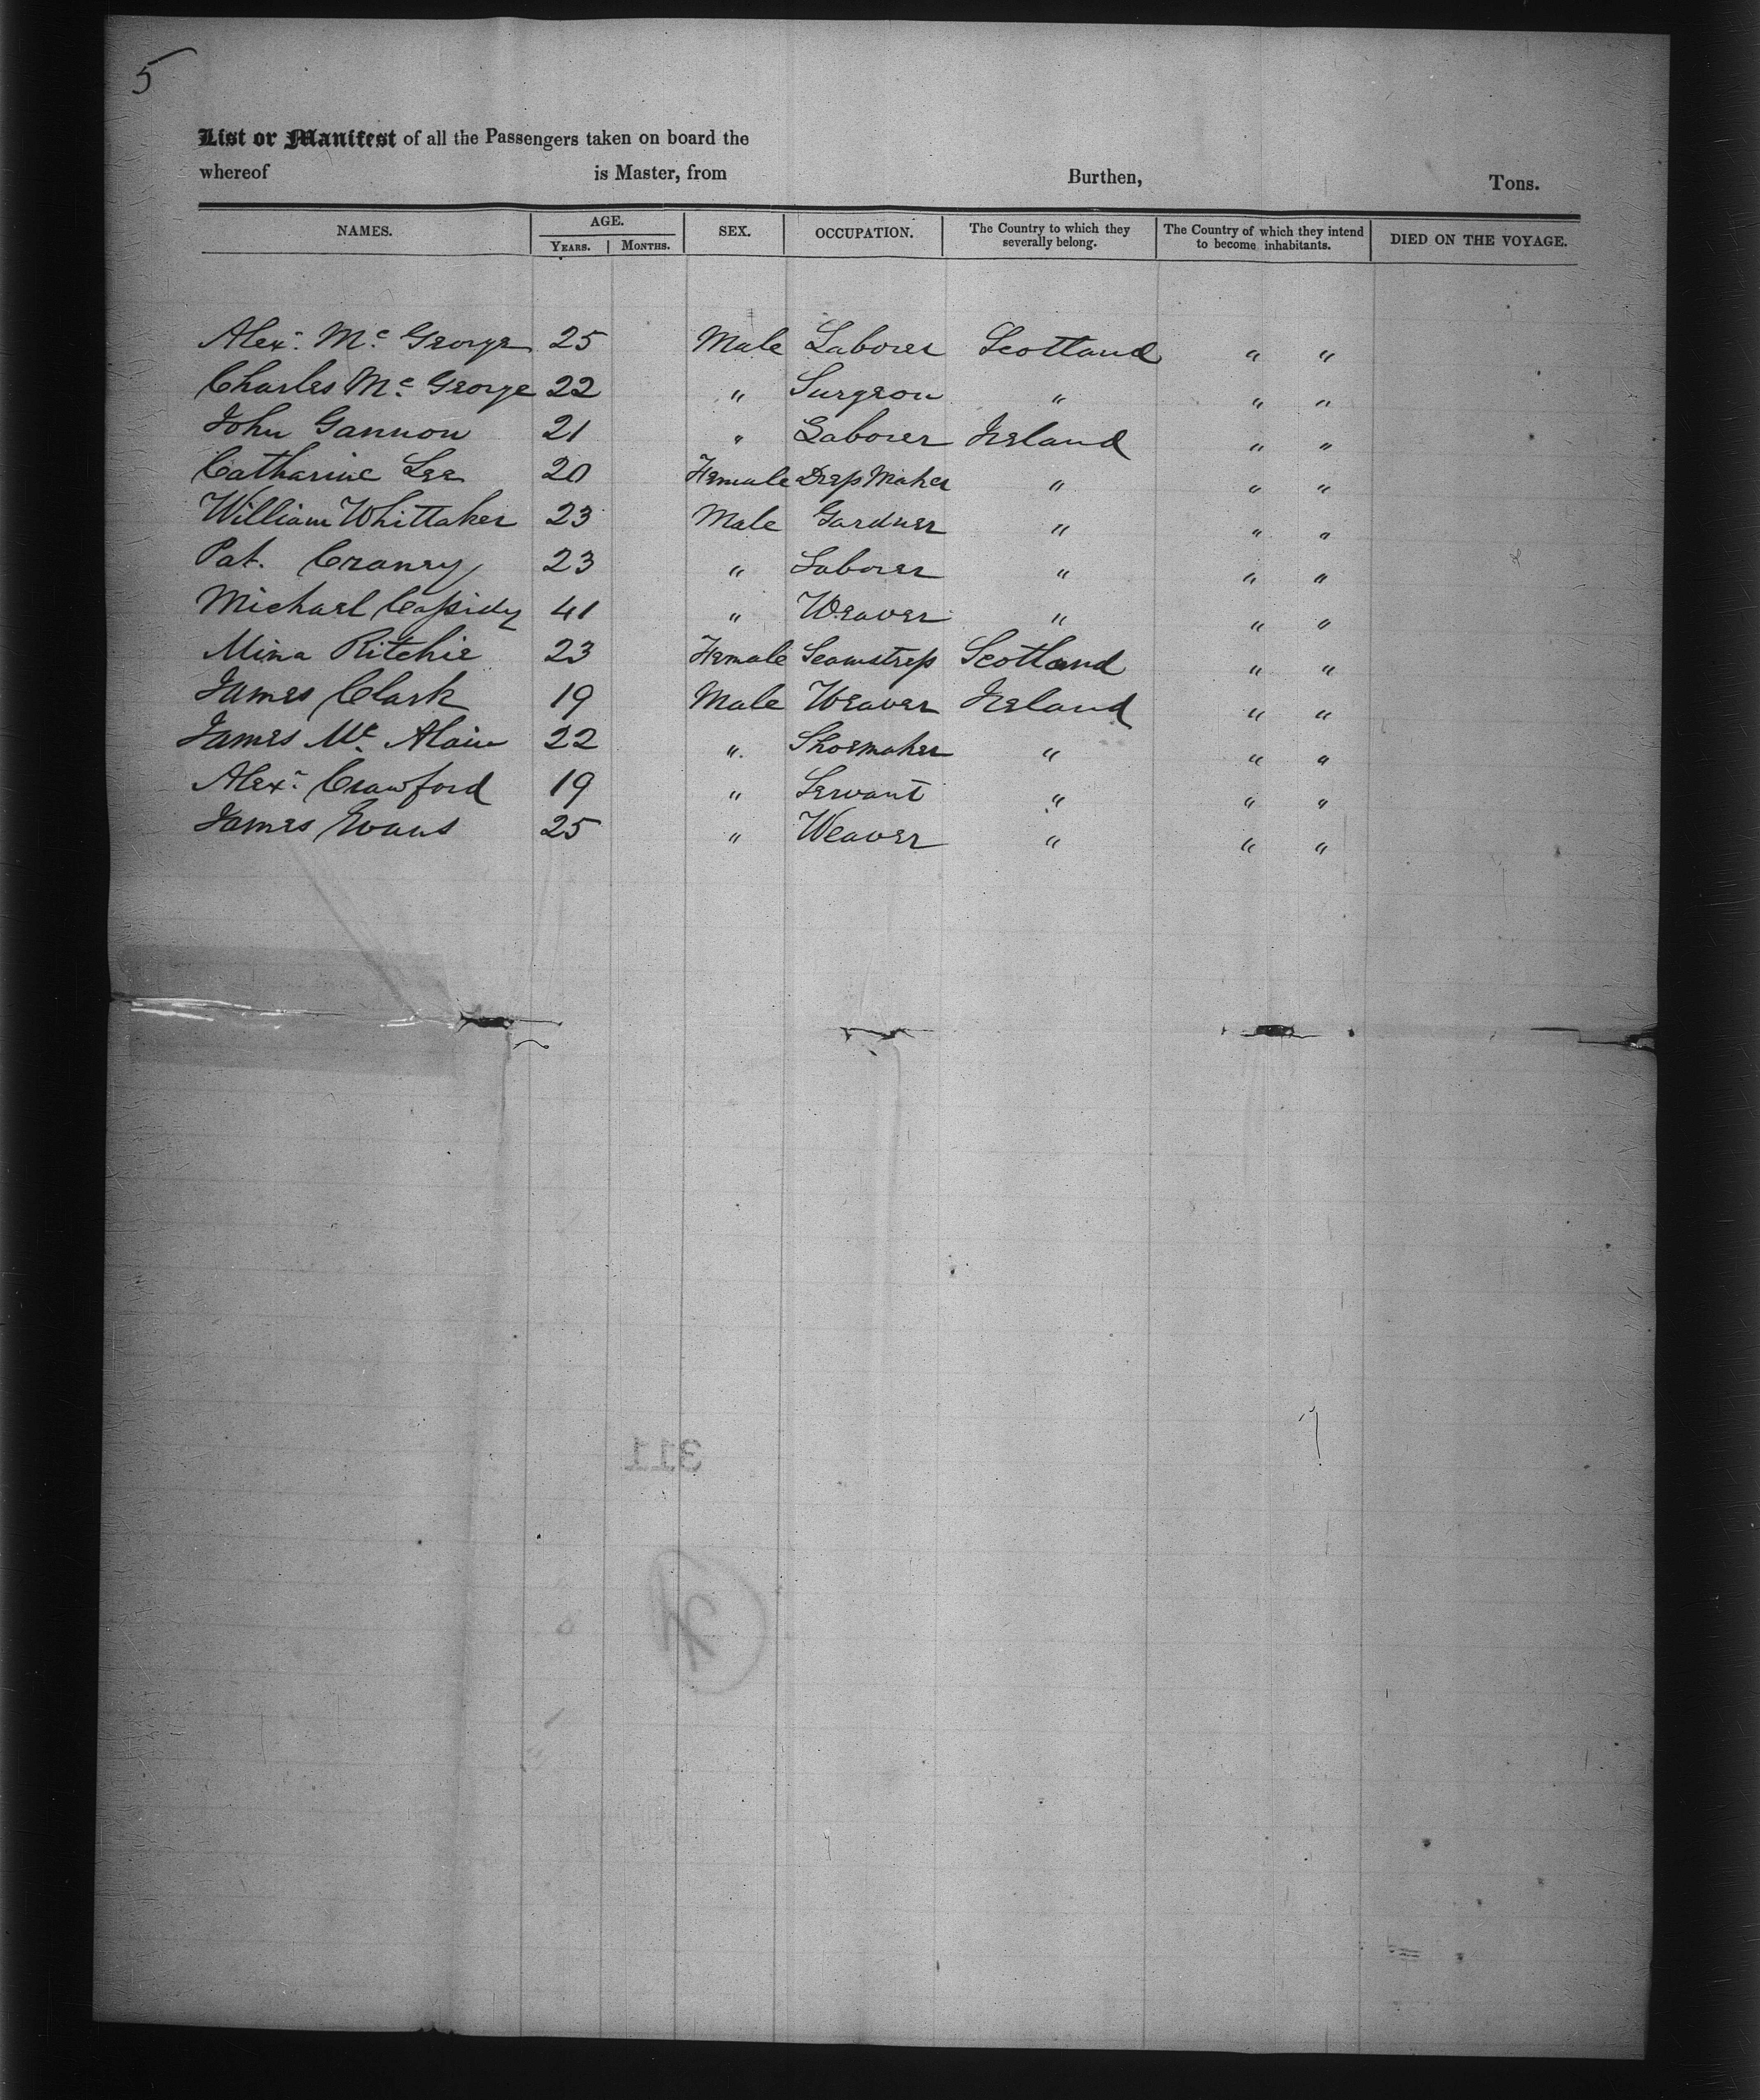 5
List or Manifest of all the Passengers taken on board the
whereof is Master, from Burthen, Tons.
NAMES. AGE. SEX. OCCUPATION. The Country to which they severally belong. The Country of which they intend to become inhabitants. DIED ON THE VOYAGE.
YEARS. MONTHS.
Alexr. Mc. George 25 Male Laborer Scotland " "
Charles Mc. George 22 " Surgeon " " "
John Gannon 21 " Laborer Ireland " "
Catharine Lee 20 Female Dress Maker " " "
William Whittaker 23 Male Gardner " " "
Pat. Craney 23 " Laborer " " "
Michael Cassidy 41 " Weaver " " "
Mina Ritchie 23 Female Seamstress Scotland " "
James Clark 19 Male Weaver Ireland " "
James Mc. Alain 22 " Shoemaker " " "
Alexr. Crawford 19 " Servant " " "
James Evans 25 " Weaver " " "
311